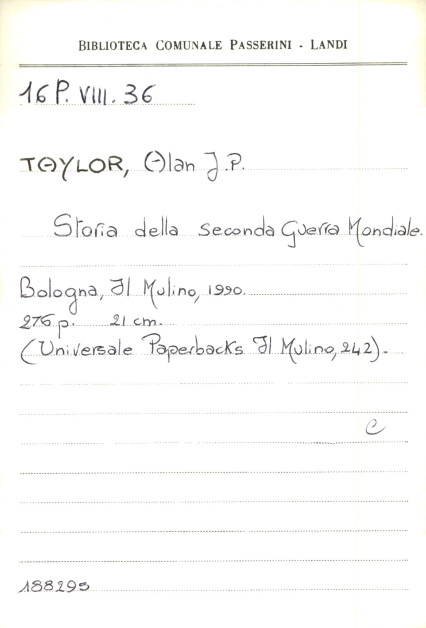 BIBLIOTECA COMUNALE PASSERINI - LANDI
16 P. VIII. 36
TAYLOR, Alan J.P.
Storia della seconda Guerra Mondiale.
Bologna, Il Mulino, 1990.
276 p. 21 cm.
(Universale Paperbacks Il Mulino, 242).
C
188295